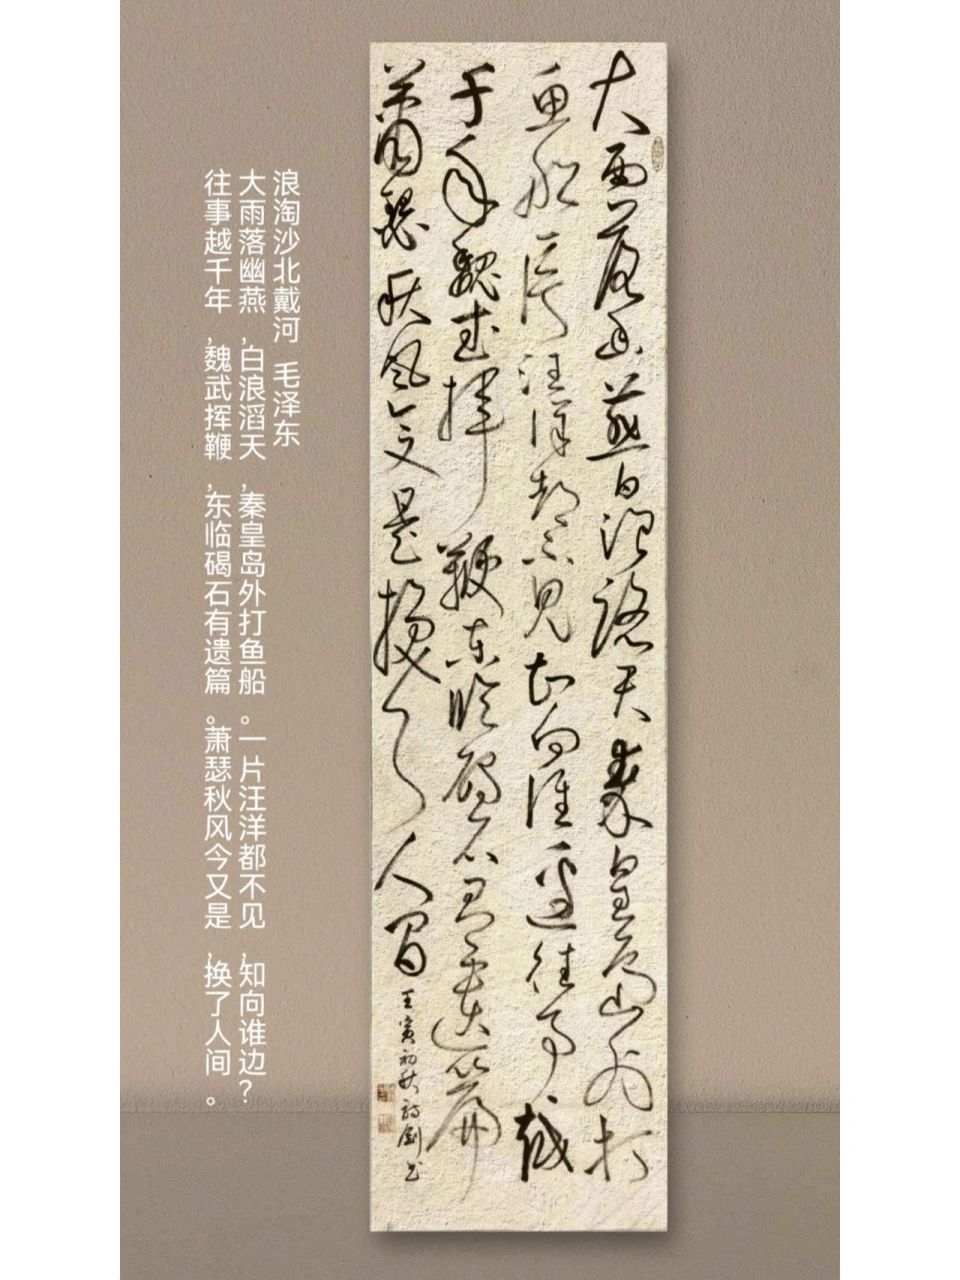 大雨落幽燕白浪滔天秦皇島外打
魚船一片汪洋都不見知向誰邊往事越
千年魏武揮鞭東臨碣石有遺篇
蕭瑟秋風今又是換了人間
壬寅初秋 书
浪淘沙北戴河 毛泽东
大雨落幽燕,白浪滔天,秦皇岛外打鱼船。一片汪洋都不见,知向谁边?
往事越千年,魏武挥鞭,东临碣石有遗篇。萧瑟秋风今又是,换了人间。